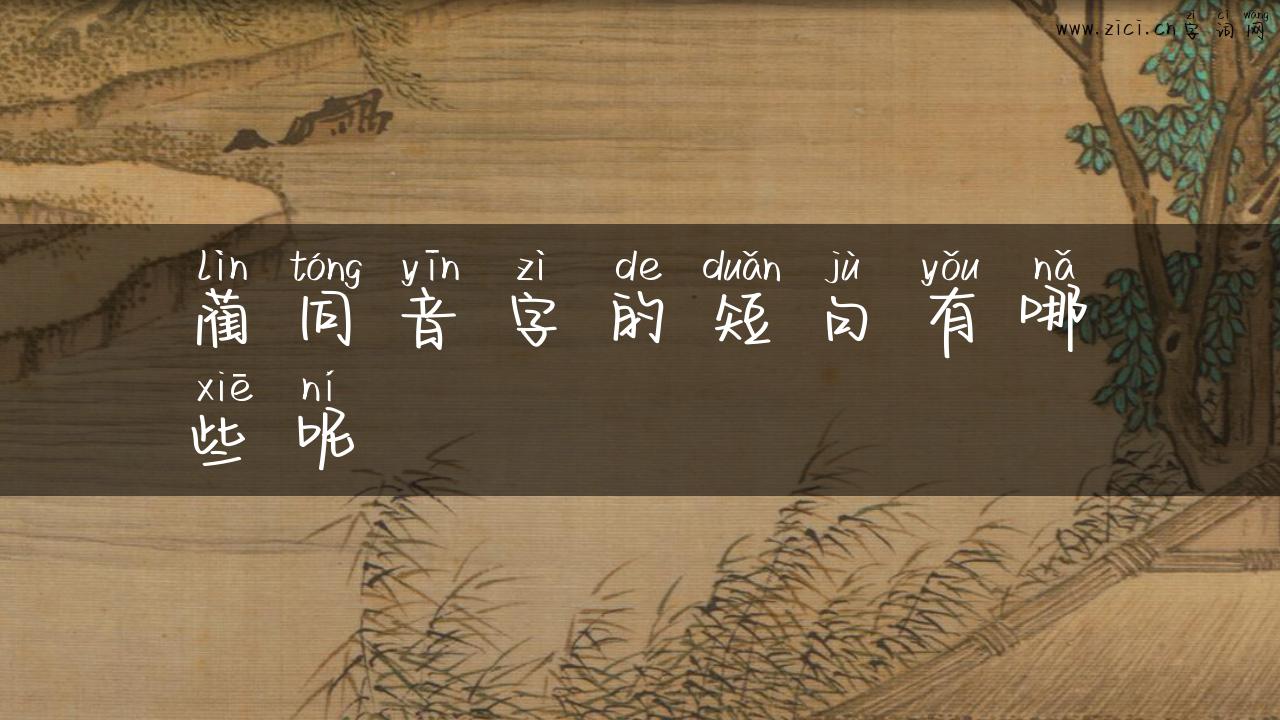 zì cí wǎng
www.zici.cn字词网
lìn tóng yīn zì de duǎn jù yǒu nǎ
蔺同音字的短句有哪
xiē ní
些呢